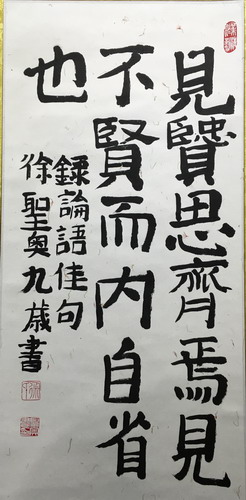 見賢思齊焉見
不賢而內自省
也
録論語佳句
徐聖奧九歲書